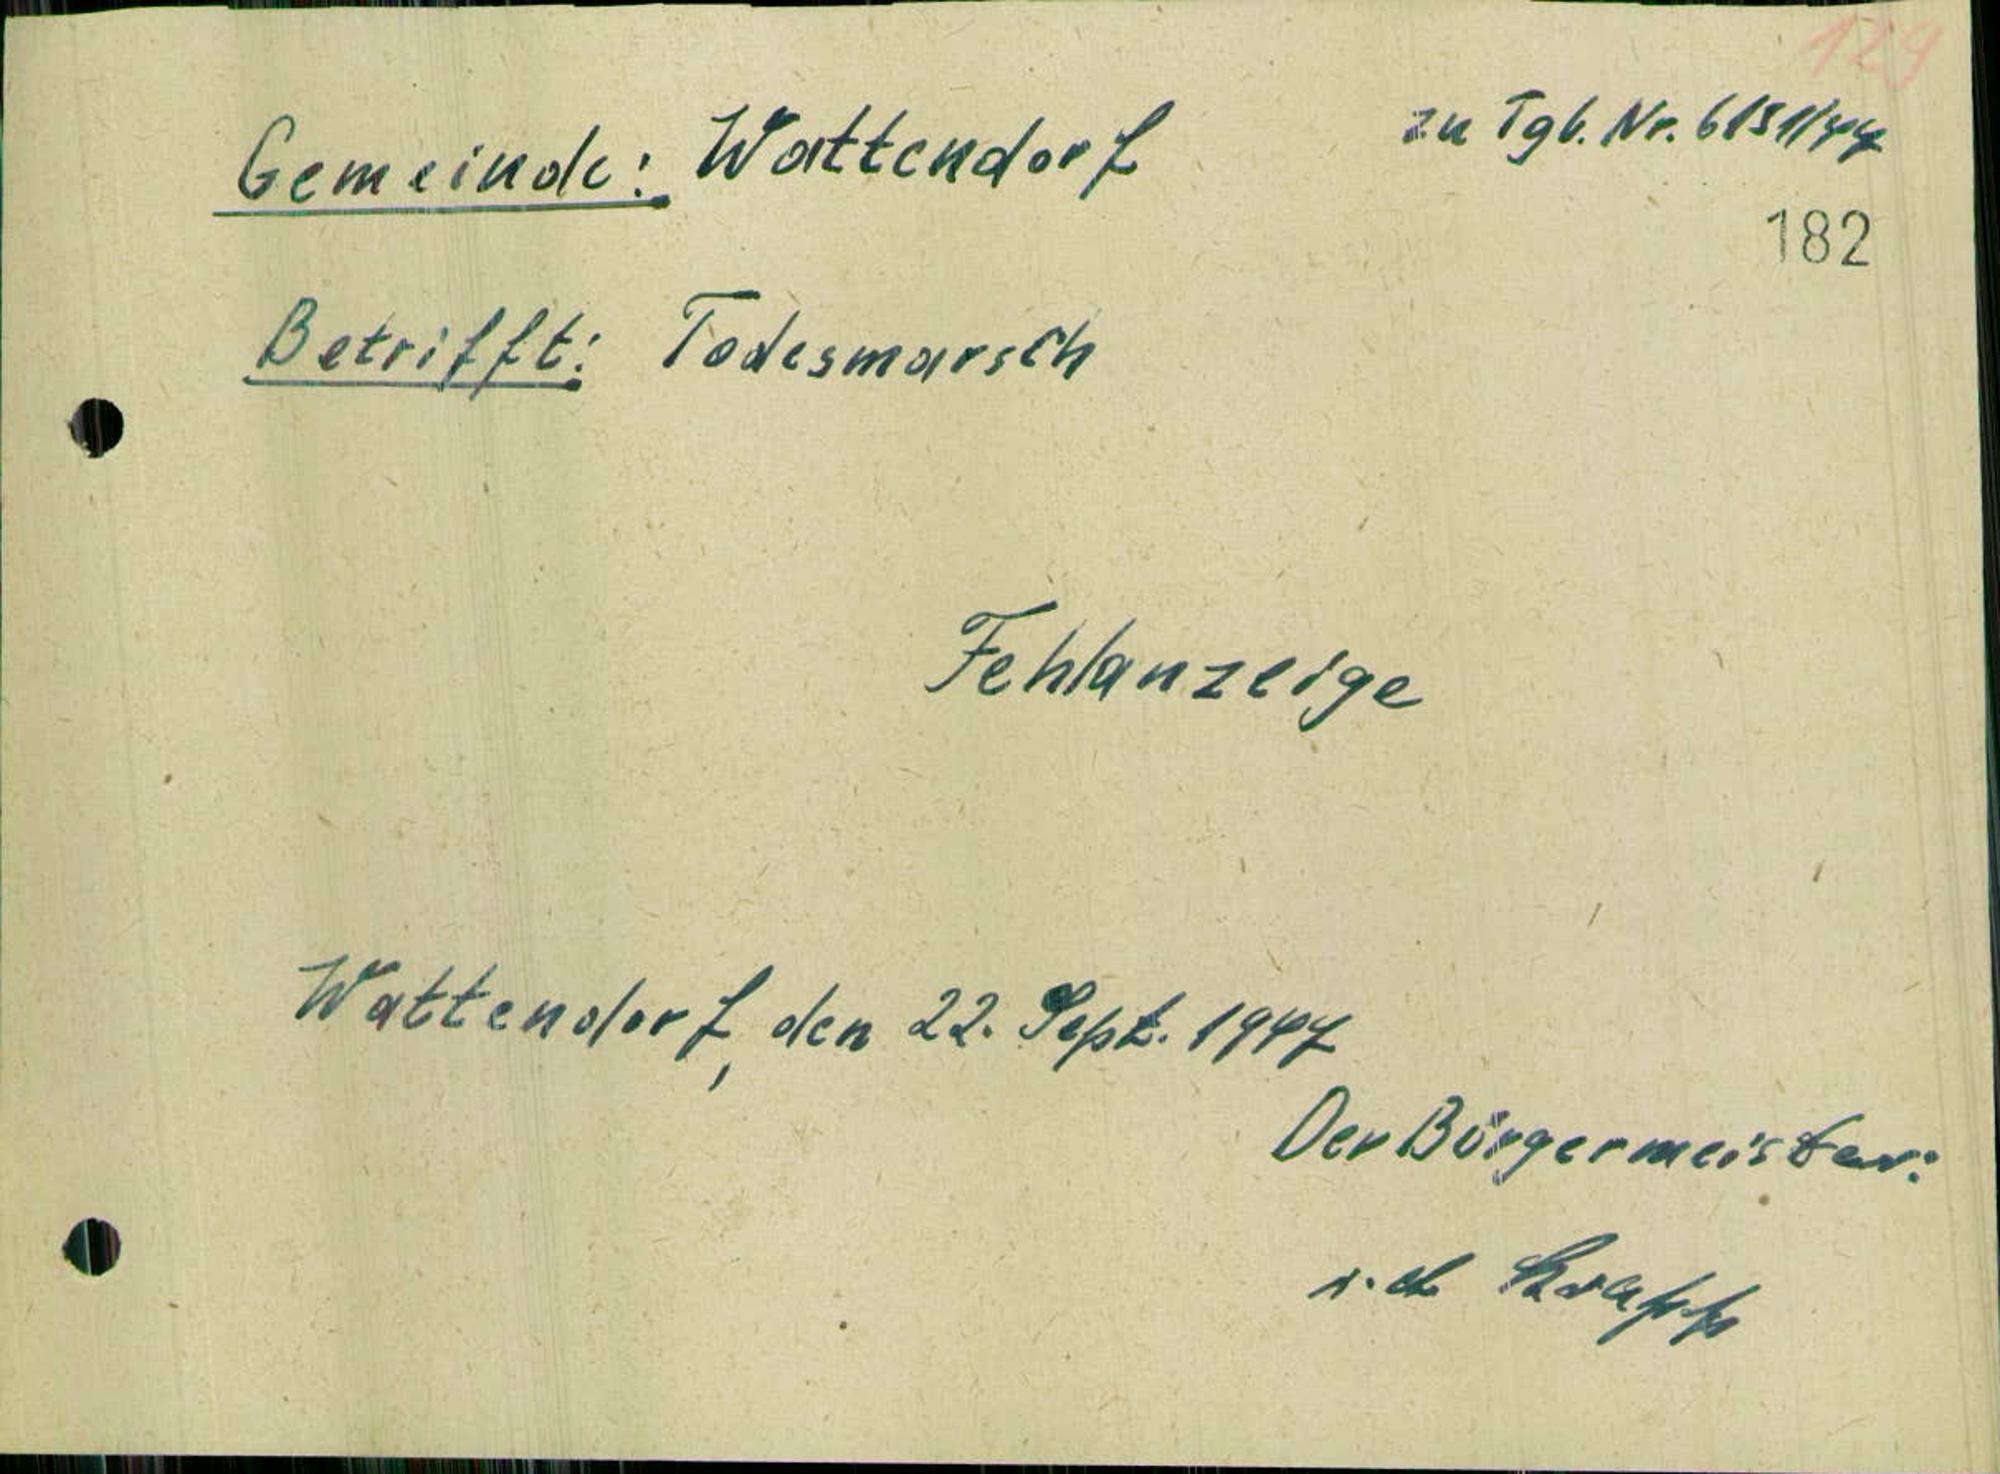 129
Gemeinde: Wattendorf
zu Tgb. Nr. 6151/47
182
Betrifft: Todesmarsch
Fehlanzeige
Wattendorf, den 22. Sept. 1947
Der Bürgermeister:
Krapp